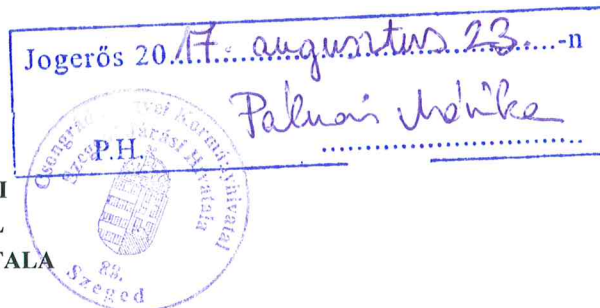 Jogerős 2017. augusztus 23.-n
P.H.
Csongrád Megyei Kormányhivatal
Szegedi Járási Hivatala
88.
Szeged
I
TALA